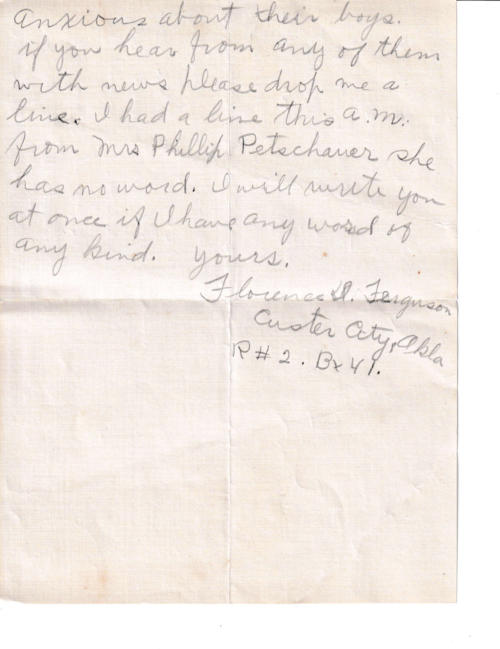 anxious about their boys.
if you hear from any of them
with news please drop me a
line. I had a line this a.m.
from Mrs Phillip Petschauer she
has no word. I will write you
at once if I have any word of
any kind. yours.
Florence D. Ferguson
Custer City, Okla
R # 2. Bx 41.